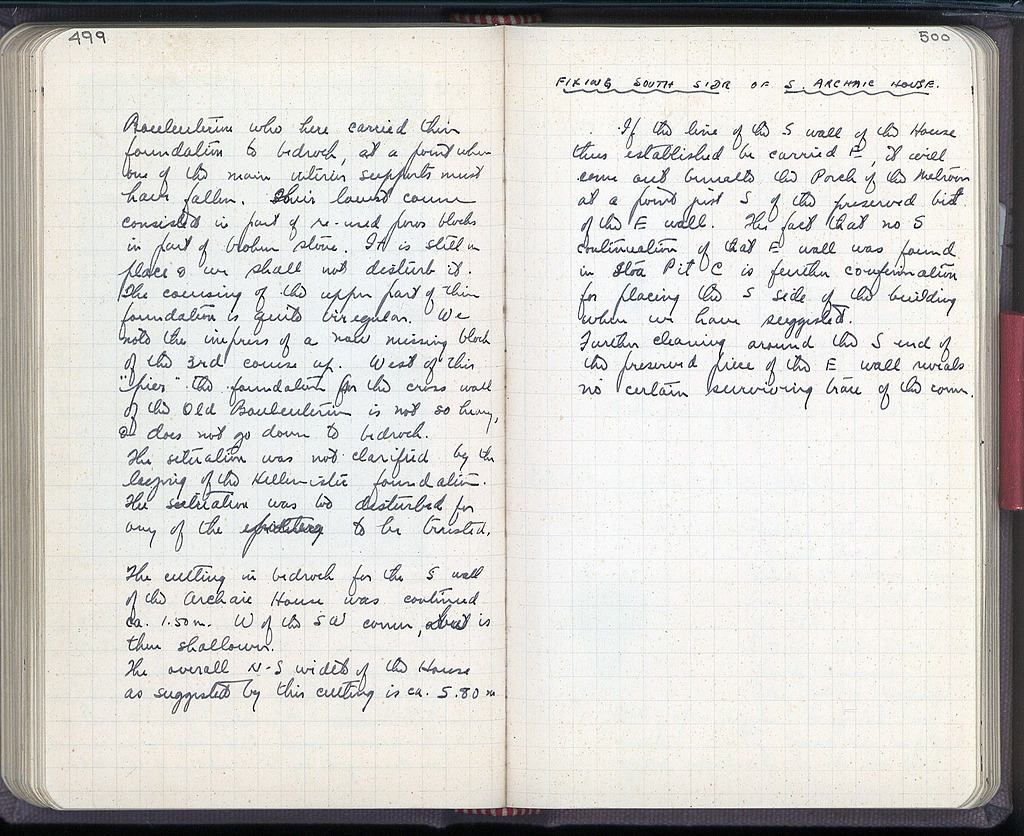 499
Bouleuterion who here carried their
foundation to bedrock, at a point where
one of the main interior supports must
have fallen. Their lowest course
consisted in part of re-used poros blocks
in part of broken stone. It is still in
place & we shall not disturb it.
The coursing of the upper part of their
foundation is quite irregular. We
note the impress of a now missing block
of the 3rd course up. West of this
"pier" the foundation for the cross wall
of the Old Bouleuterion is not so heavy,
& does not go down to bedrock.
The situation was not clarified by the
laying of the Hellenistic foundation.
The situation was too disturbed for
any of the to be trusted.
The cutting in bedrock for the S wall
of the Archaic House was continued
ca. 1.50 m. W of the SW corner, but is
then shallower.
The overall N-S width of the House
as suggested by this cutting is ca. 5.80 m
500
FIXING SOUTH SIDE OF S. ARCHAIC HOUSE.
If the line of the S wall of the House
thus established be carried E, it will
come out beneath the Porch of the Metroon
at a point just S of the preserved bit
of the E wall. The fact that no S
continuation of that E wall was found
in Stoa Pit C is further confirmation
for placing the S side of the building
where we have suggested.
Further cleaning around the S end of
the preserved piece of the E wall reveals
no certain surviving trace of the corner.